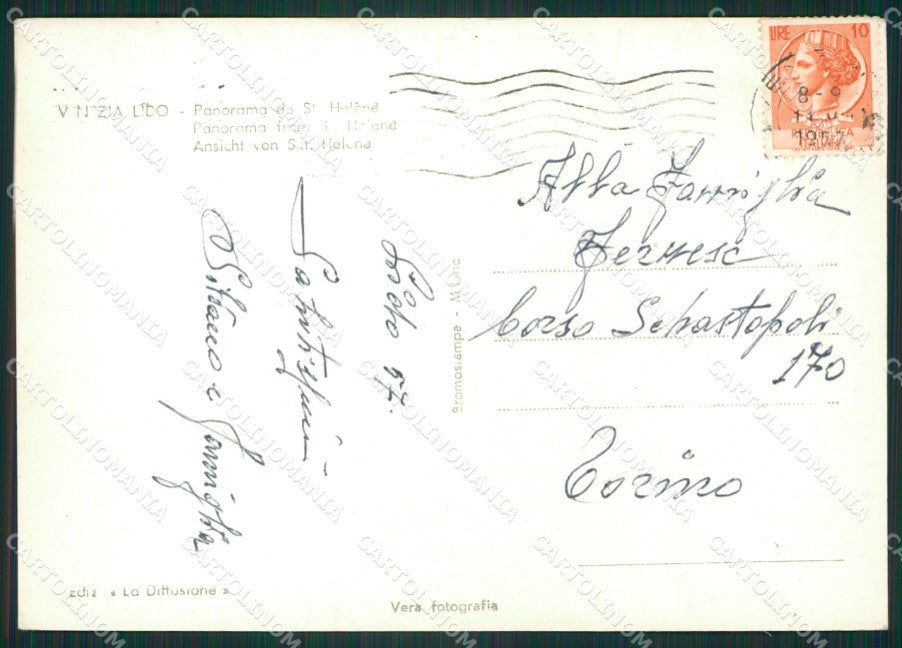 VENEZIA LIDO - Panorama de St. Helène
Panorama from St. Helene
Ansicht von St. Helene
LIRE 10
8-9
1957
Alla Famiglia
Corso Sebastopoli
170
Torino
Lido 57.
Saluti
e famiglia
Bromostampa - Milano
ediz. « La Diffusione »
Vera fotografia
CARTOLINOMANIA